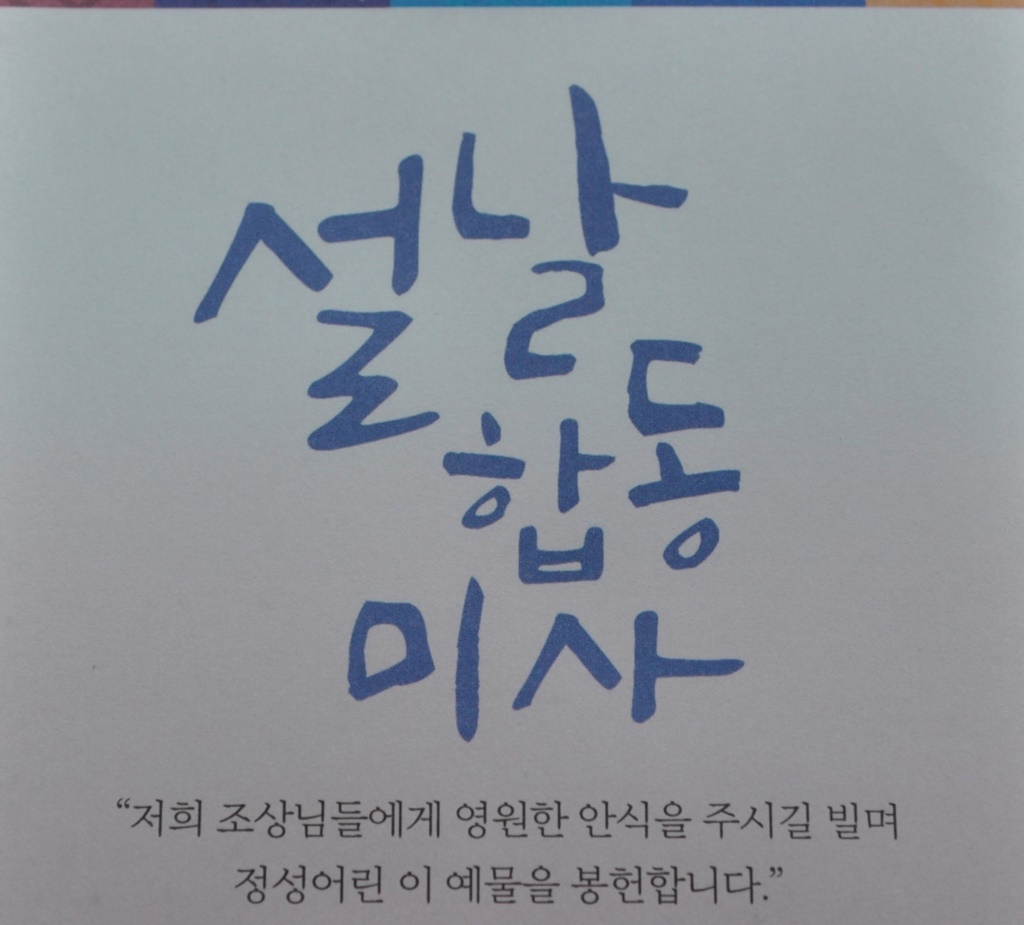 설날
합동
미사
“저희 조상님들에게 영원한 안식을 주시길 빌며
정성어린 이 예물을 봉헌합니다.”